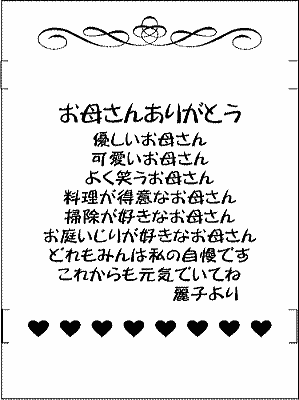 お母さんありがとう
優しいお母さん
可愛いお母さん
よく笑うお母さん
料理が得意なお母さん
掃除が好きなお母さん
お庭いじりが好きなお母さん
どれもみんは私の自慢です
これからも元気でいてね
麗子より